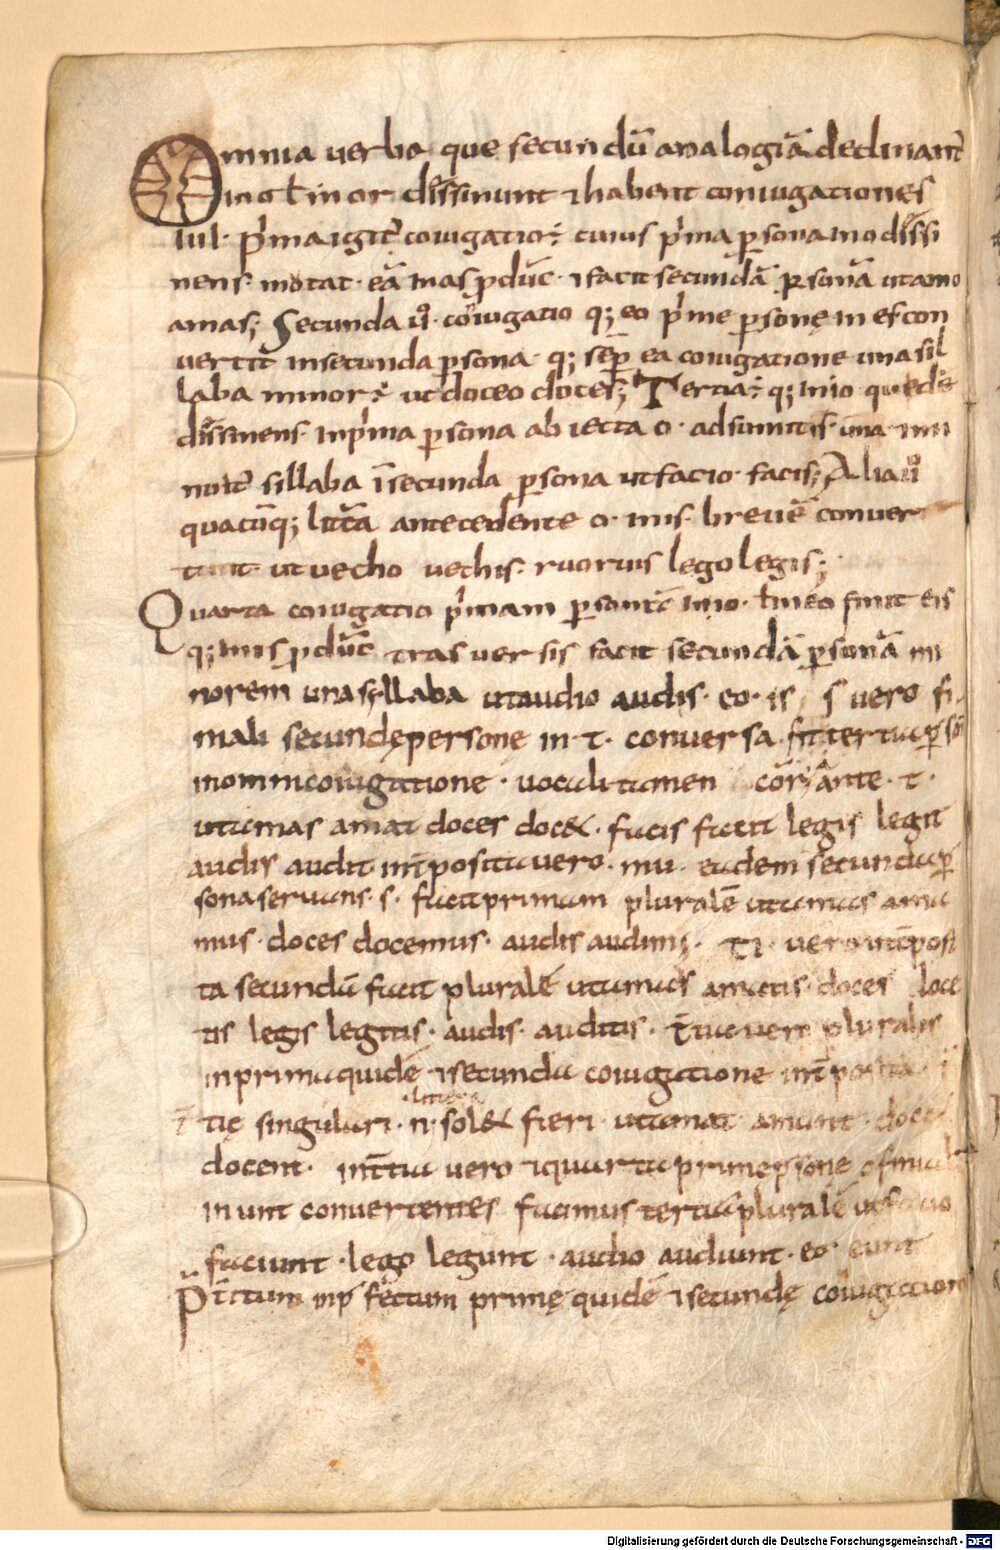 Omnia verba que secundū analogiā declinant᷑
in o t̄ in or dissinunt ⁊ habent coniugationes
IIII· p᷑ma igit᷑ coiugatio· cuius p᷑ma p̱sona in o dissi
nens· mutat· eā in as p̱duc̄· ⁊ facit secundā p̱sonā ut amo
amas; Secunda ū͛· coiugatio q; eo p᷑me p̱sonę in es con
vertit in secunda p̱sona· q; sēp ea coiugatione una sil
laba minor· ut doceo doces; Tertia· q; in io
dissinens· in p᷑ma p̱sona abiecta o· adsumit is· una mi
not᷑ sillaba ī secunda p̱sona ut facio· facis; Alia ū͛
quacūq; littā antecedente o· in is· brevē conver
tunt ut vecho vechis· ruo ruis lego legis;
Quarta coiugatio p᷑mam p̱sonā in io· t̄ in eo finit eis
q; in is p̱duc̄ trasversis facit secundā p̱sonā mi
norem una syllaba ut audio audis· eo· is s vero fi
nali secundę personę in· t· conversa fit tertia p̱so
in omni coiugatione· vocali tamen corr̄ante· t·
ut amas amat doces doc& · facis facit legis legit
audis audit int̄posita vero· mu· eadem secunda p̱
sona servans· s· facit primam pluralē ut amas ama
mus· doces docemus· audis audimus· ti· vero int̄posi
ta secundū facit pluralē ut amas amatis· doces doce
tis legis legitis· audis· auditis· t̄tia vero pluralis
in prima quidē ⁊ secunda coiugatione int̄posita
·littera·
tię singulari· n· sol& fieri· ut amat amant· docet
docent· in t̄tia vero ⁊ quarta prime p̱sone o finale
in unt convertentes facimus tertiā pluralē ut facio
faciunt· lego legunt· audio audiunt· eo· eunt
P̄t̄itum inp̱fectum primę quidē ⁊ secundę coiugation